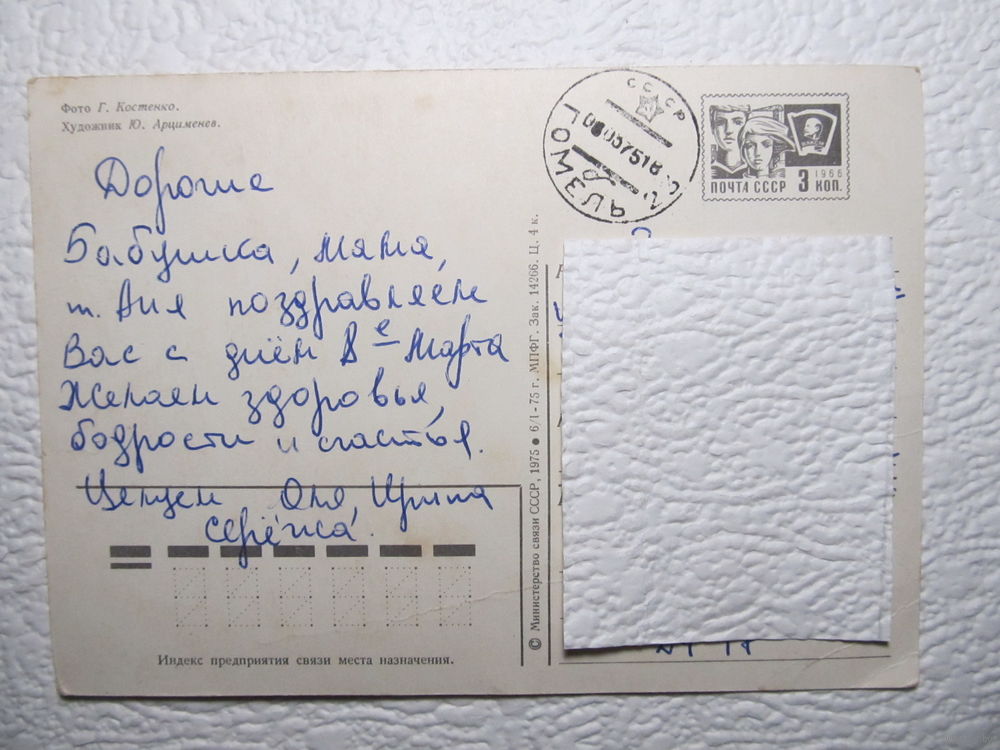 Фото Г. Костенко.
Художник Ю. Арцименев.
Дорогие
Бабушка, мама,
т. Аня поздравляем
Вас с днём 8е Марта
Желаем здоровья,
бодрости и счастья.
Целуем Оля, Ирина
Серёжа.
Индекс предприятия связи места назначения.
© Министерство связи СССР, 1975 ● 6/I-75 г. МПФГ. Зак. 14266. Ц. 4 к.
СССР
ГОМЕЛЬ
ПОЧТА СССР 3 КОП.
1966